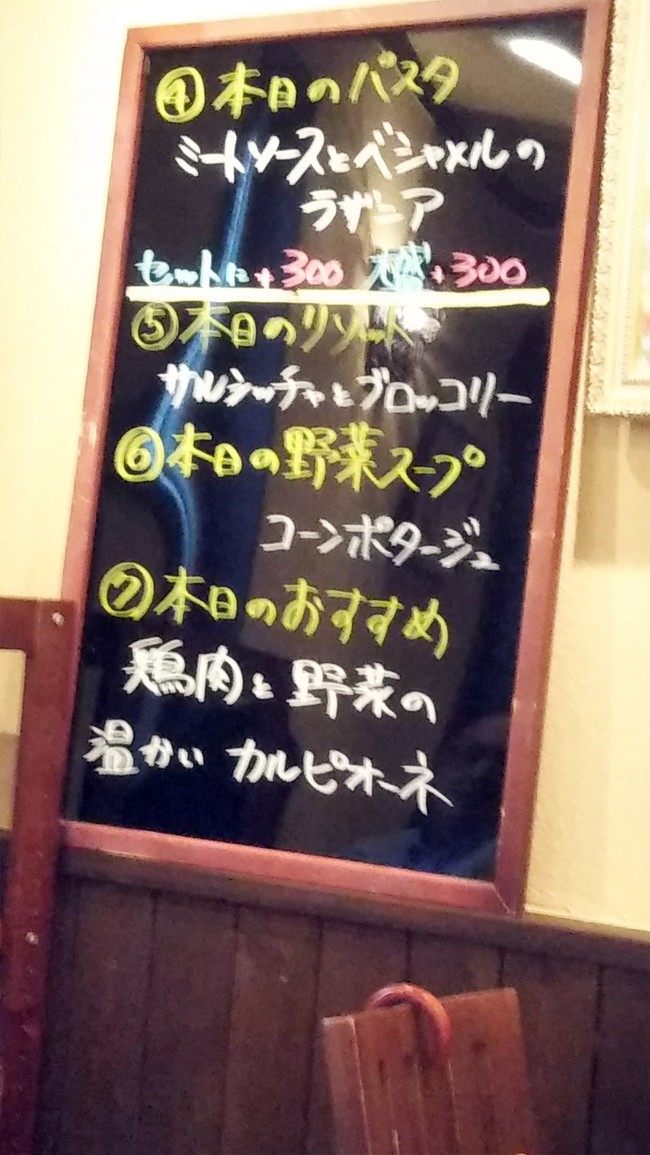 ④本日のパスタ
ミートソースとベシャメルの
ラザニア
セットに+300 大盛+300
⑤本日のリゾット
サルシッチャとブロッコリー
⑥本日の野菜スープ
コーンポタージュ
⑦本日のおすすめ
鶏肉と野菜の
温かいカルピオーネ